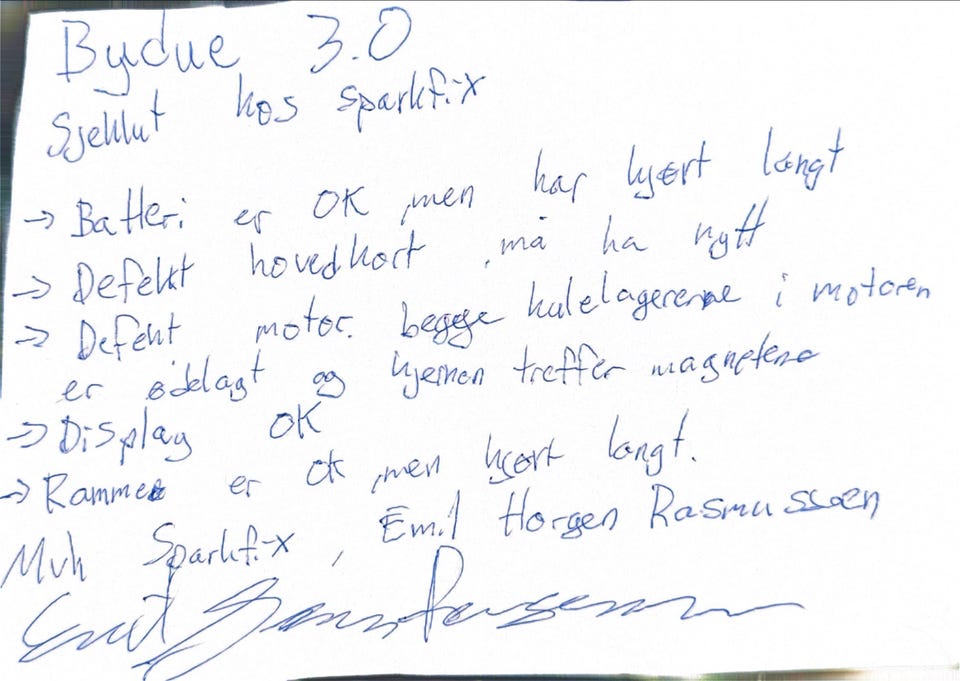 Bydue 3.0
Sjekkut hos sparkfix
→ Batteri er OK, men har kjørt langt
→ Defekt hovedkort, må ha nytt
→ Defekt motor. begge kulelagerene i motoren
er ødelagt og kjernen treffer magnetene
→ Display OK
→ Rammer er ok, men kjørt langt.
Mvh Sparkfix, Emil Horgen Rasmussen